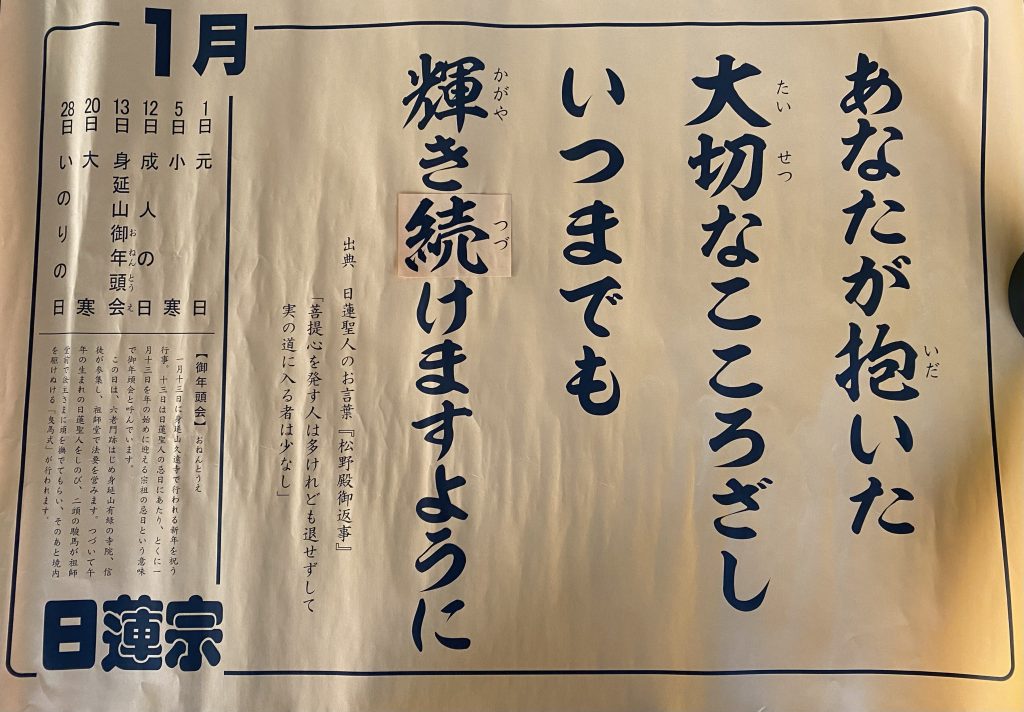 あなたが抱いた
いだ
大切なこころざし
たい せつ
いつまでも
輝き続けますように
かがや つづ
出典 日蓮聖人のお言葉『松野殿御返事』
「菩提心を発す人は多けれども退せずして
実の道に入る者は少なし」
1月
1日 元日
5日 小寒
12日 成人の日
13日 身延山御年頭会
お ねん とう え
20日 大寒
28日 いのりの日
【御年頭会】おねんとうえ
一月十三日に身延山久遠寺で行われる新年を祝う
行事。十三日は日蓮聖人の忌日にあたり、とくに一
月十三日を年の始めに迎える宗祖の忌日という意味
で御年頭会と呼んでいます。
この日は、六老門跡はじめ身延山有縁の寺院、信
徒が参集し、祖師堂で法要を営みます。つづいて午
年の生まれの日蓮聖人をしのび、二頭の駿馬が祖師
堂前で法主さまに頭を撫でてもらい、そのあと境内
を駆けぬける「曳馬式」が行われます。
日蓮宗